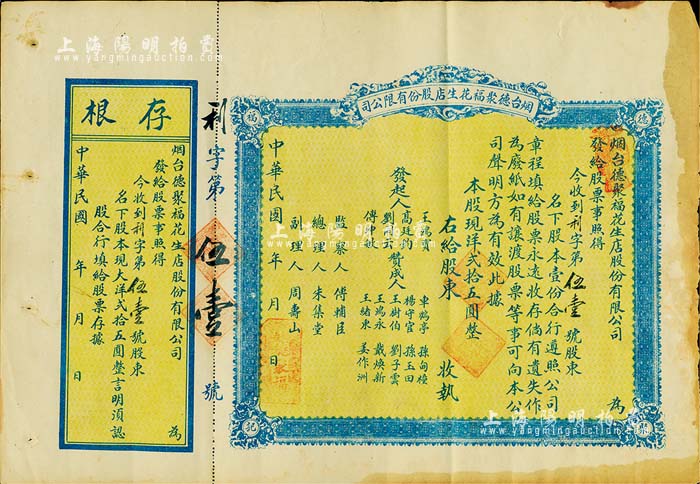 上海陽明拍賣
www.yangmingauction.com
烟台德聚福花生店股份有限公司
德
福
記
烟台德聚福花生店股份有限公司 為
發給股票事照得
今收到利字第伍壹號股東
名下股本壹份合行遵照公司
章程填給股票永遠收存倘有遺失作
為廢紙如有讓渡股票等事可向本公
司聲明方為有效此據
本股現洋弍拾五圓整
右給股東 收執
發起人
贊成人
車鶴亭 孫甸樓
楊守宣 孫玉田
王樹伯 劉子雲
王鴻永 戴煥新
王緒東 姜作洲
監察人 傅輔臣
總理人 朱集堂
副理人 周壽山
中華民國 年 月 日
利字第伍壹號
存根
烟台德聚福花生店股份有限公司 為
發給股票事照得
今收到利字第伍壹號股東
名下股本現大洋弍拾五圓整言明須認
股合行填給股票存據
中華民國 年 月 日
上海陽明拍賣
www.yangmingauction.com